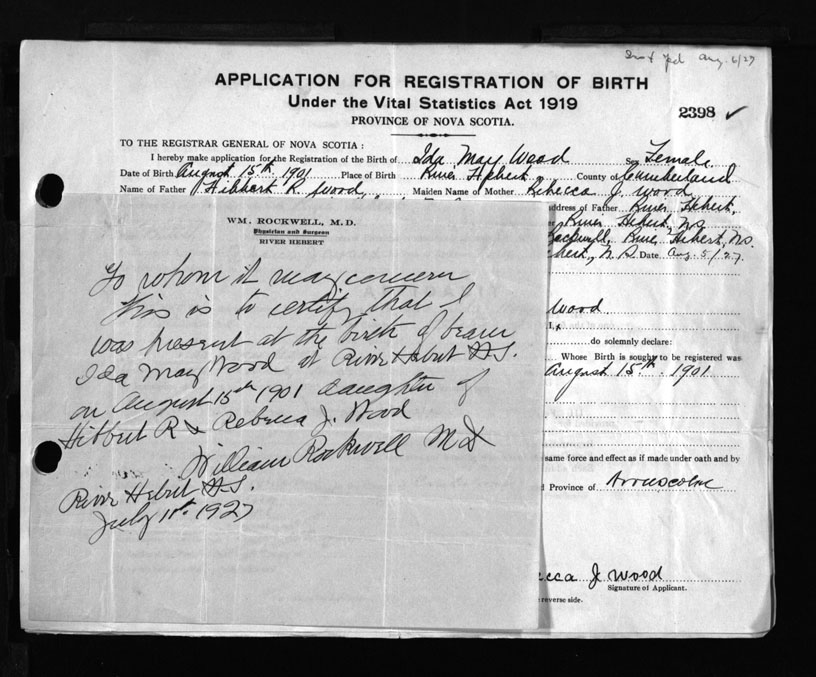 Aug. 6/27
APPLICATION FOR REGISTRATION OF BIRTH
Under the Vital Statistics Act 1919
PROVINCE OF NOVA SCOTIA.
2398 ✓
TO THE REGISTRAR GENERAL OF NOVA SCOTIA :
I hereby make application for the Registration of the Birth of Ida May Wood Sex Female
Date of Birth August 15th 1901 Place of Birth River Hebert County of Cumberland
Name of Father Hibbert R. Wood Maiden Name of Mother Rebecca J. Wood
ddress of Father River Hebert,
River Hebert, N.S.
Rockwell, River Hebert, N.S.
ebert, N.S. Date Aug. 5/27.
WM. ROCKWELL, M. D.
Physician and Surgeon
RIVER HEBERT
To whom it may concern
This is to certify that I
was present at the birth of bearer
Ida May Wood at River Hebert N.S.
on August 15th 1901 daughter of
Hibbert R & Rebecca J. Wood
William Rockwell MD
River Hebert N.S.
July 11th 1927
Wood
I,
do solemnly declare:
Whose Birth is sought to be registered was
August 15th 1901
same force and effect as if made under oath and by
d Province of
ecca J Wood
Signature of Applicant.
reverse side.